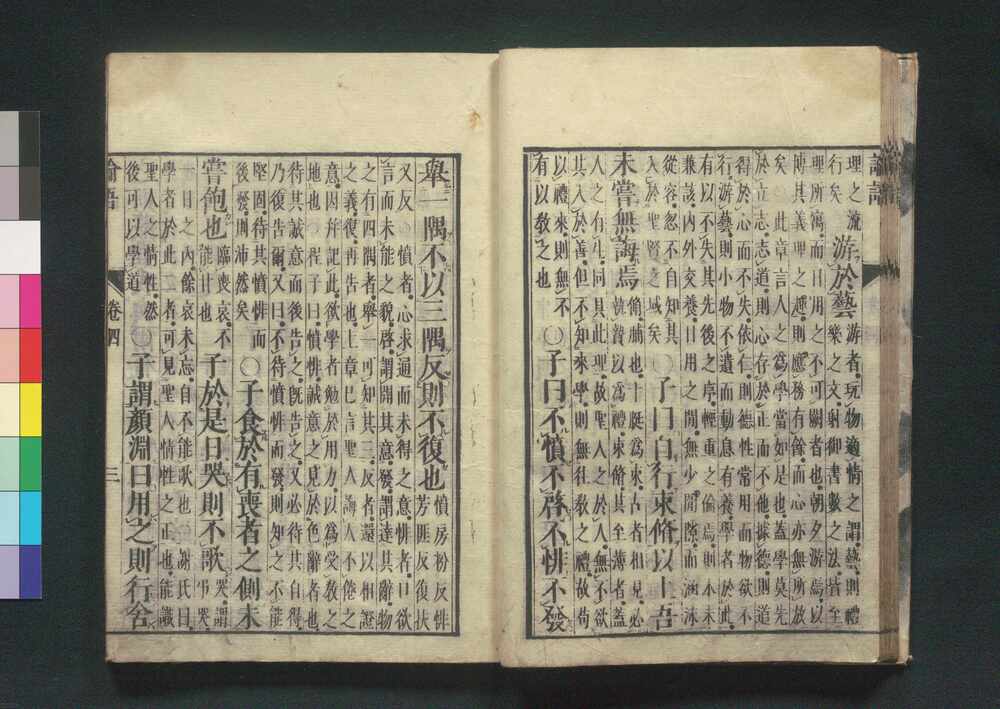 論語
理之流
行矣
游於藝
游者玩物適情之謂藝則禮
樂之文射御書數之法皆至
理所寓而日用之不可闕者也朝夕游焉以
博其義理之趣則應務有餘而心亦無所放
矣○此章言人之為學當如是也蓋學莫先
於立志志道則心存於正而不他據德則道
得於心而不失依仁則德性常用而物欲不
行游藝則小物不遺而動息有養學者於此
有以不失其先後之序輕重之倫焉則本末
兼該內外交養日用之閒無少閒隙而涵泳
從容忽不自知其
入於聖賢之域矣
○子曰自行束脩以上吾
未嘗無誨焉
脩脯也十脡為束古者相見必
執贄以為禮束脩其至薄者蓋
人之有生同具此理故聖人之於人無不欲
其入於善但不知來學則無往教之禮故苟
以禮來則無不
有以教之也
○子曰不憤不啓不悱不發
舉一隅不以三隅反則不復也
憤房粉反悱
芳匪反復扶
又反○憤者心求通而未得之意悱者口欲
言而未能之貌啓謂開其意發謂達其辭物
之有四隅者舉一可知其三反者還以相證
之義復再告也上章已言聖人誨人不倦之
意因并記此欲學者勉於用力以為受教之
地也○程子曰憤悱誠意之見於色辭者也
待其誠意而後告之既告之又必待其自得
乃復告爾又曰不待憤悱而發則知之不能
堅固待其憤悱而
後發則沛然矣
○子食於有喪者之側未
嘗飽也
臨喪哀不
能甘也
子於是日哭則不歌
哭謂
弔哭
一日之內餘哀未忘自不能歌也○謝氏曰
學者於此二者可見聖人情性之正也能識
聖人之情性然
後可以學道
○子謂顏淵曰用之則行舍
論語
卷四
三